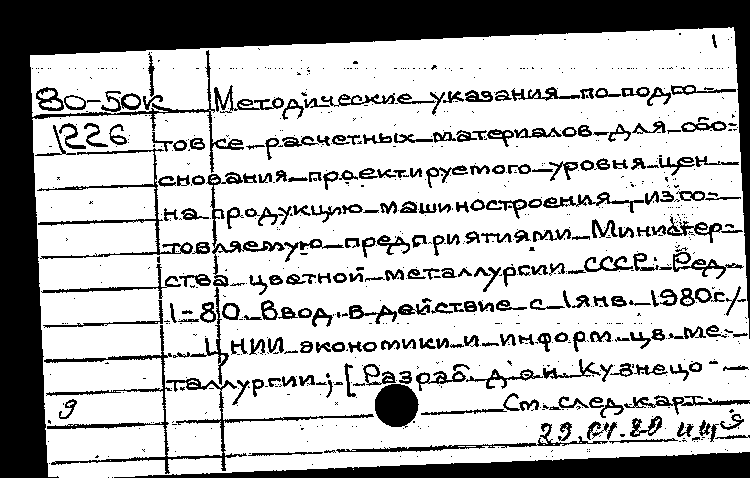 1
80-50к Методические указания по подго-
1226 товке расчетных материалов для обо-
снования проектируемого уровня цен
на продукцию машиностроения, изго-
товляемую предприятиями Министер-
ства цветной металлургии СССР: Ред.
1-80. Ввод. в действие с 1 янв. 1980г. /
ЦНИИ экономики и информ. цв. ме-
таллургии; [Разраб. д.э.н. Кузнецо-
9 См. след. карт.